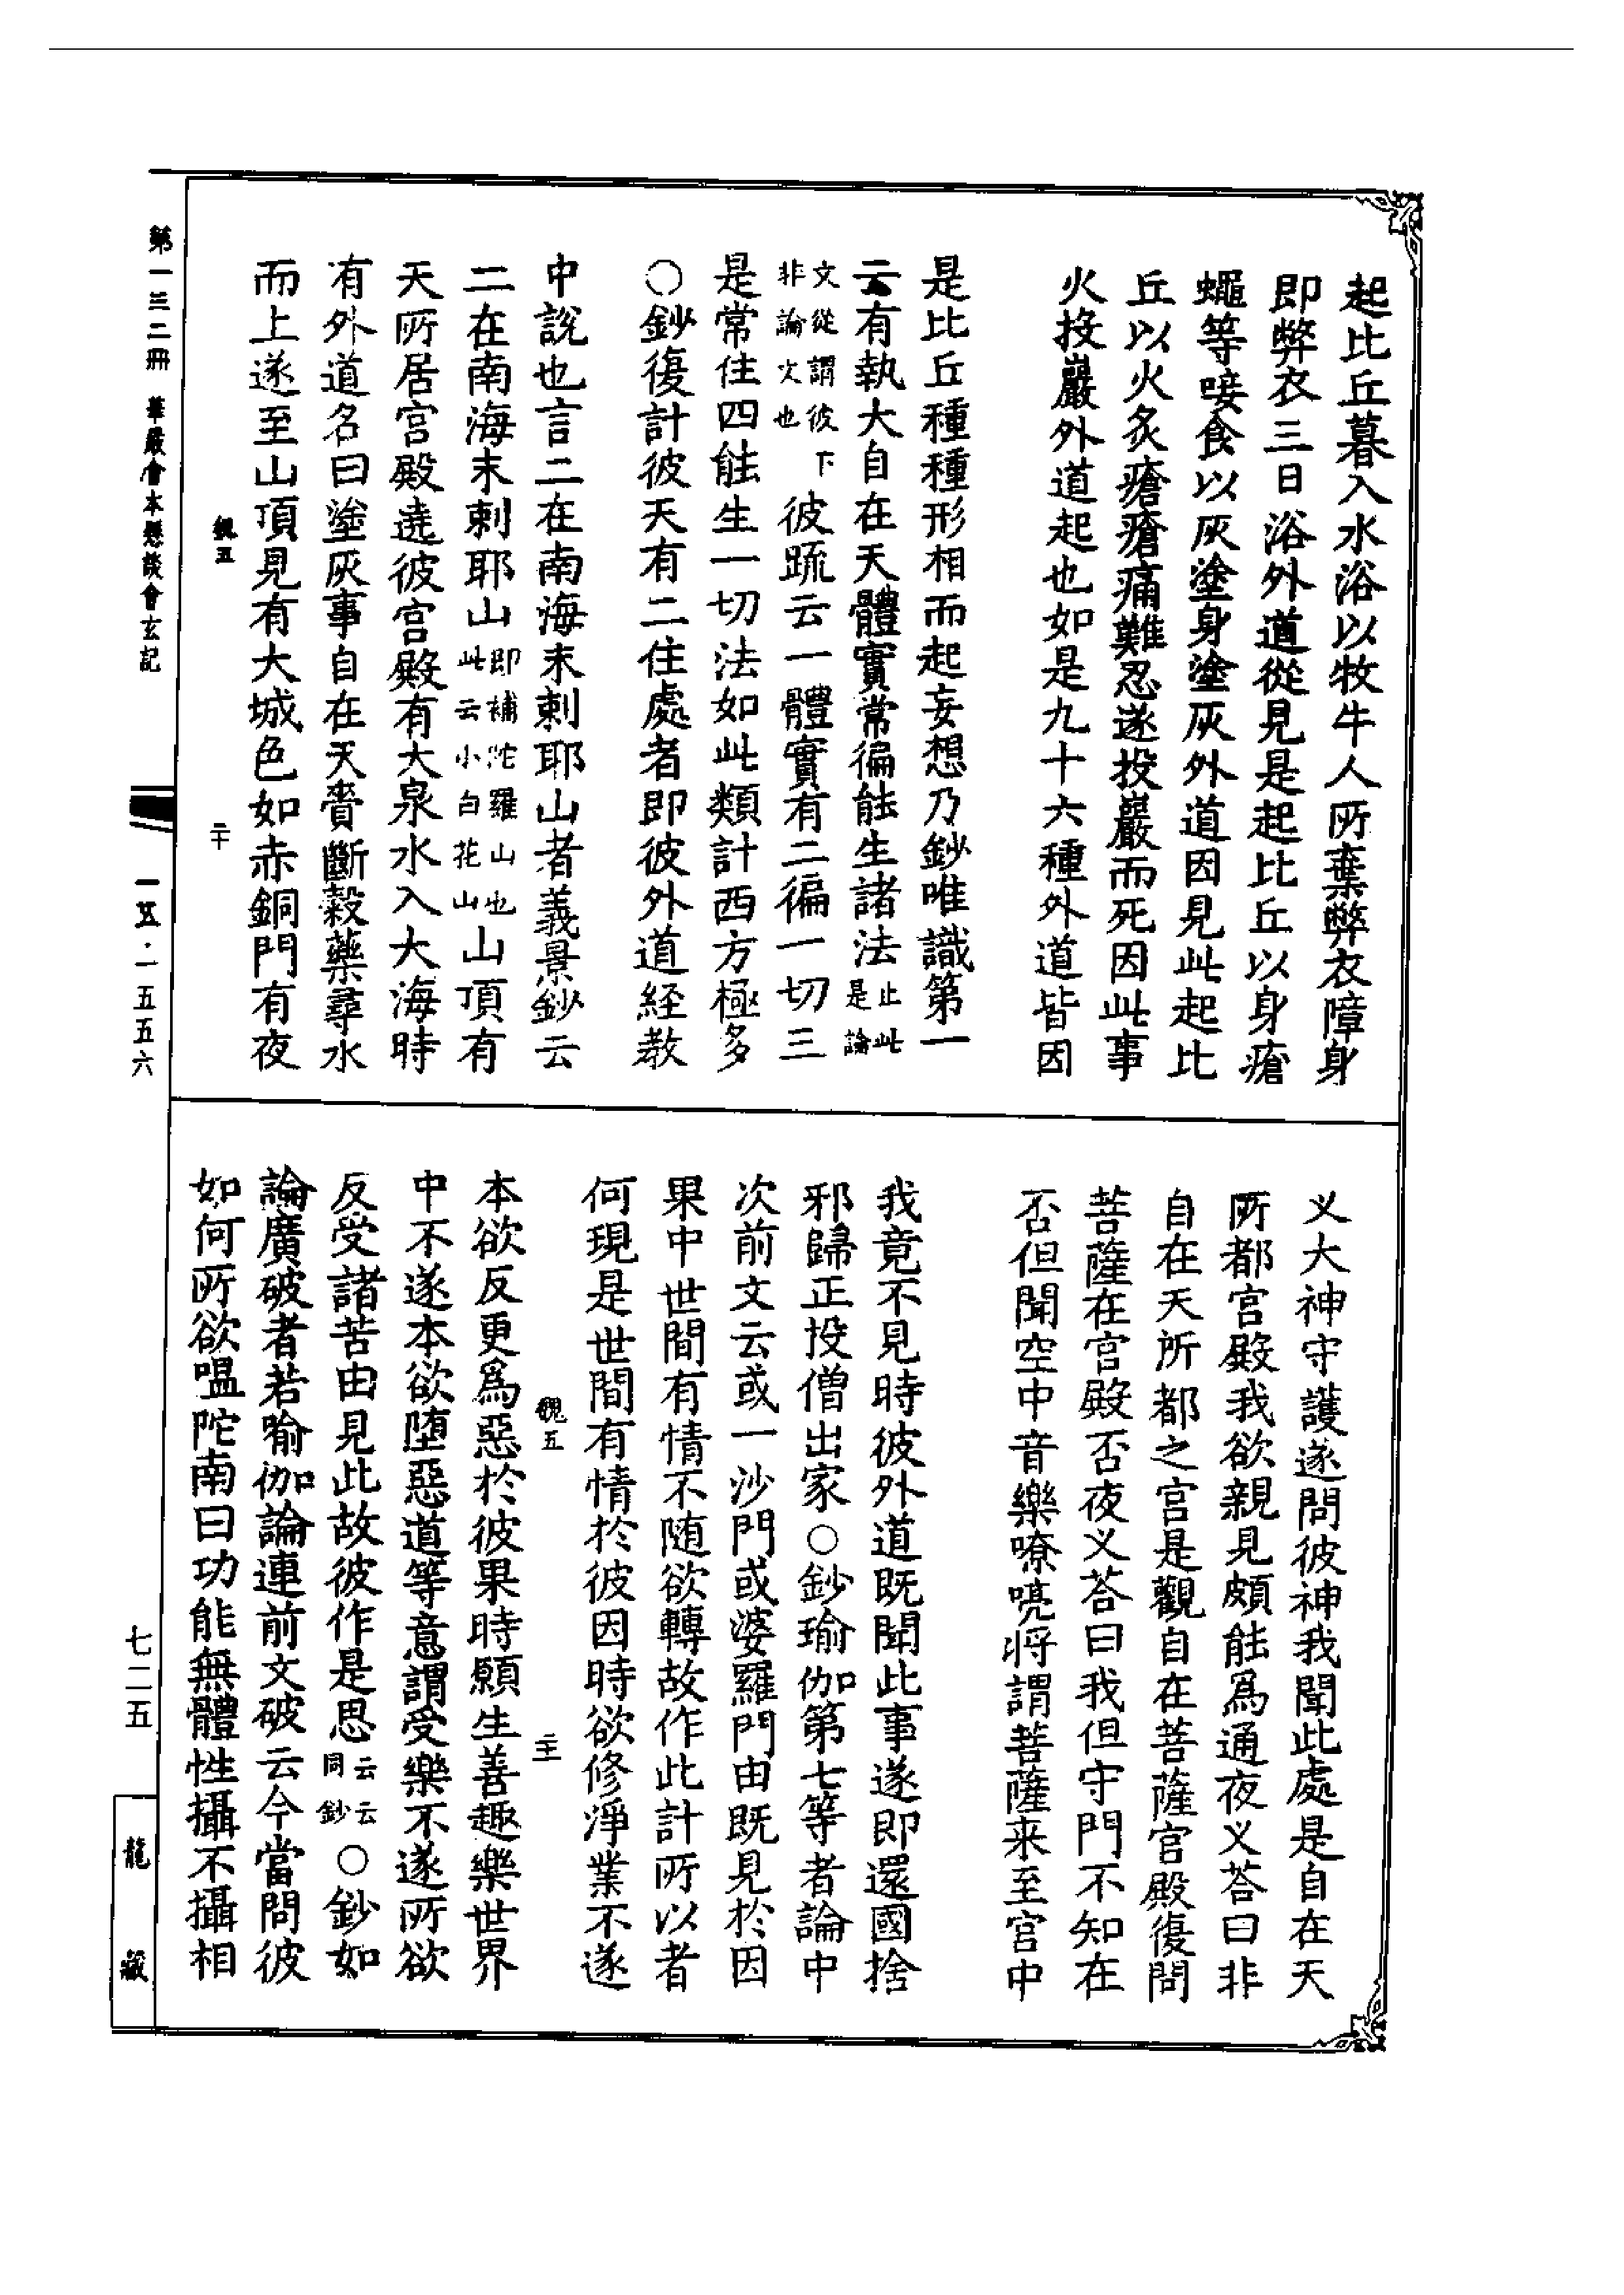 起比丘暮入水浴以牧牛人所棄弊衣障身
即弊衣三日浴外道從見是起比丘以身瘡
蠅等唼食以灰塗身塗灰外道因見此起比
丘以火炙瘡瘡痛難忍遂投巖而死因此事
火投巖外道起也如是九十六種外道皆因
是比丘種種形相而起妄想乃鈔唯識第一
云有執大自在天體實常徧能生諸法止此是論
文從謂彼下非論文也彼䟽云一體實有二徧一切三
是常住四能生一切法如此類計西方極多
○鈔復計彼天有二住處者即彼外道経教
中說也言二在南海末剌耶山者義景鈔云
二在南海末剌耶山即補陀羅山也此云小白花山山頂有
天所居宫殿遶彼宫殿有大泉水入大海時
有外道名曰塗灰事自在天賷斷穀藥尋水
而上遂至山頂見有大城色如赤銅門有夜
魏五 二十
第一三二冊 華嚴會本懸談會玄記 一五五·一五五六
义大神守護遂問彼神我聞此處是自在天
所都宫殿我欲親見頗能爲通夜义荅曰非
自在天所都之宫是觀自在菩薩宫殿復問
菩薩在宫殿否夜义荅曰我但守門不知在
否但聞空中音樂嘹喨將謂菩薩来至宫中
我竟不見時彼外道既聞此事遂即還國捨
邪歸正投僧出家○鈔瑜伽第七等者論中
次前文云或一沙門或婆羅門由既見於因
果中世間有情不随欲轉故作此計所以者
何現是世間有情於彼因時欲修淨業不遂
魏五 二十一
本欲反更爲惡於彼果時願生善趣樂世界
中不遂本欲墮惡道等意謂受樂不遂所欲
反受諸苦由見此故彼作是思云云同鈔○鈔如
論廣破者若喻伽論連前文破云今當問彼
如何所欲嗢陀南曰功能無體性攝不攝相
七二五 龍藏